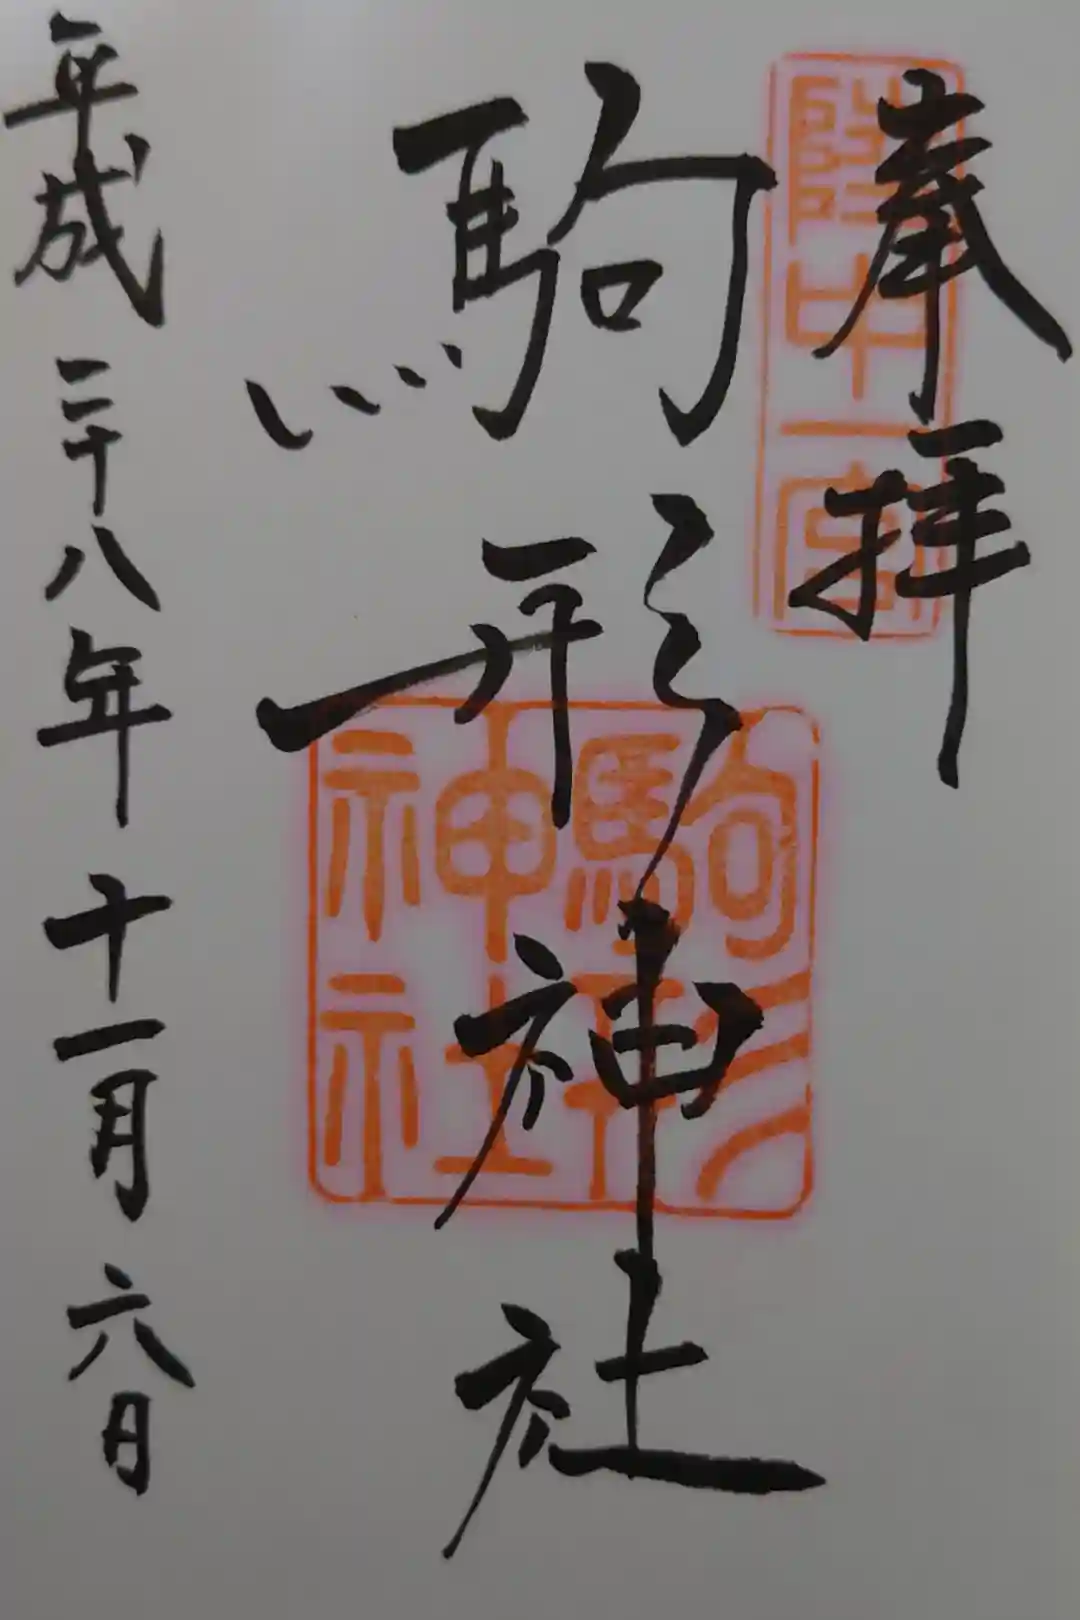 奉拝
陸中一宮
駒形神社
駒形
神社
平成二十八年十一月六日